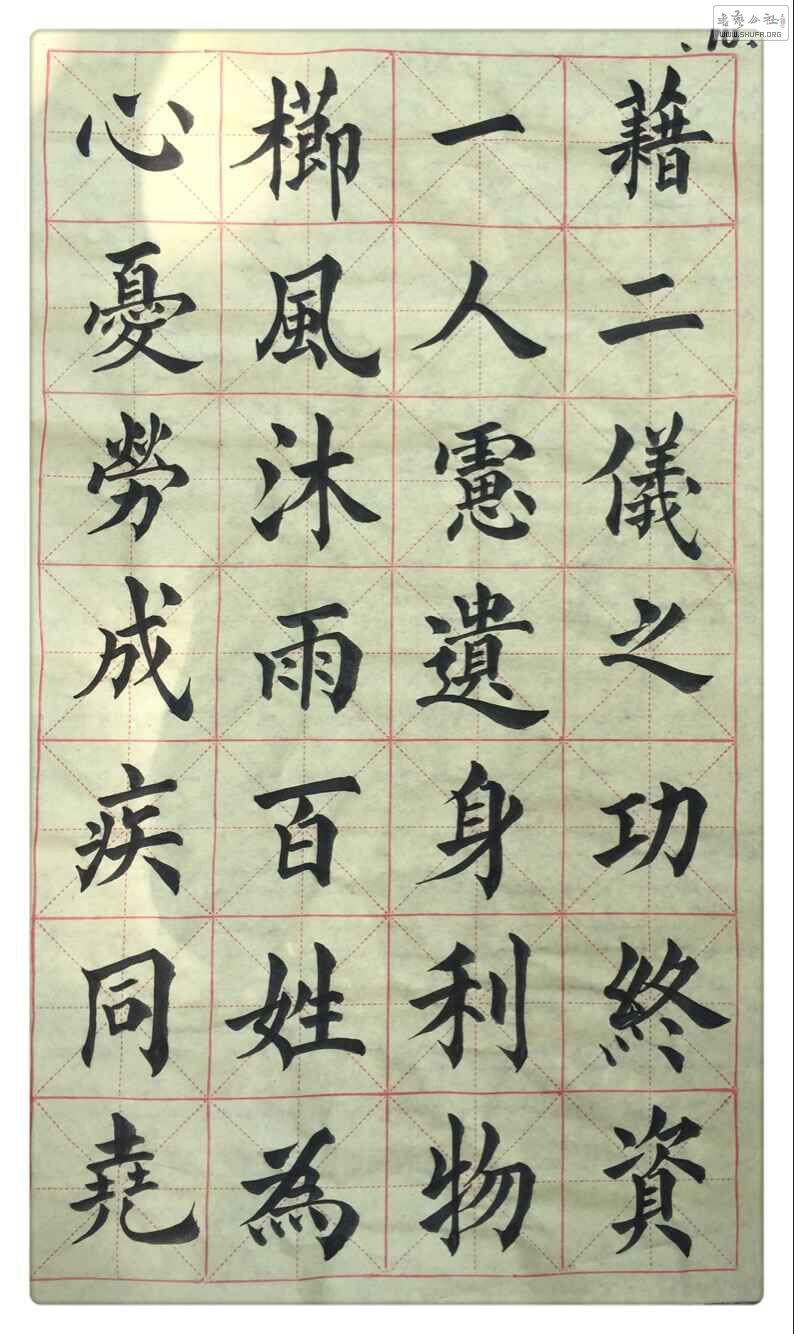 書藝公社
WWW.SHUFA.ORG
.10.
藉二儀之功終資
一人慮遺身利物
櫛風沐雨百姓為
心憂勞成疾同堯